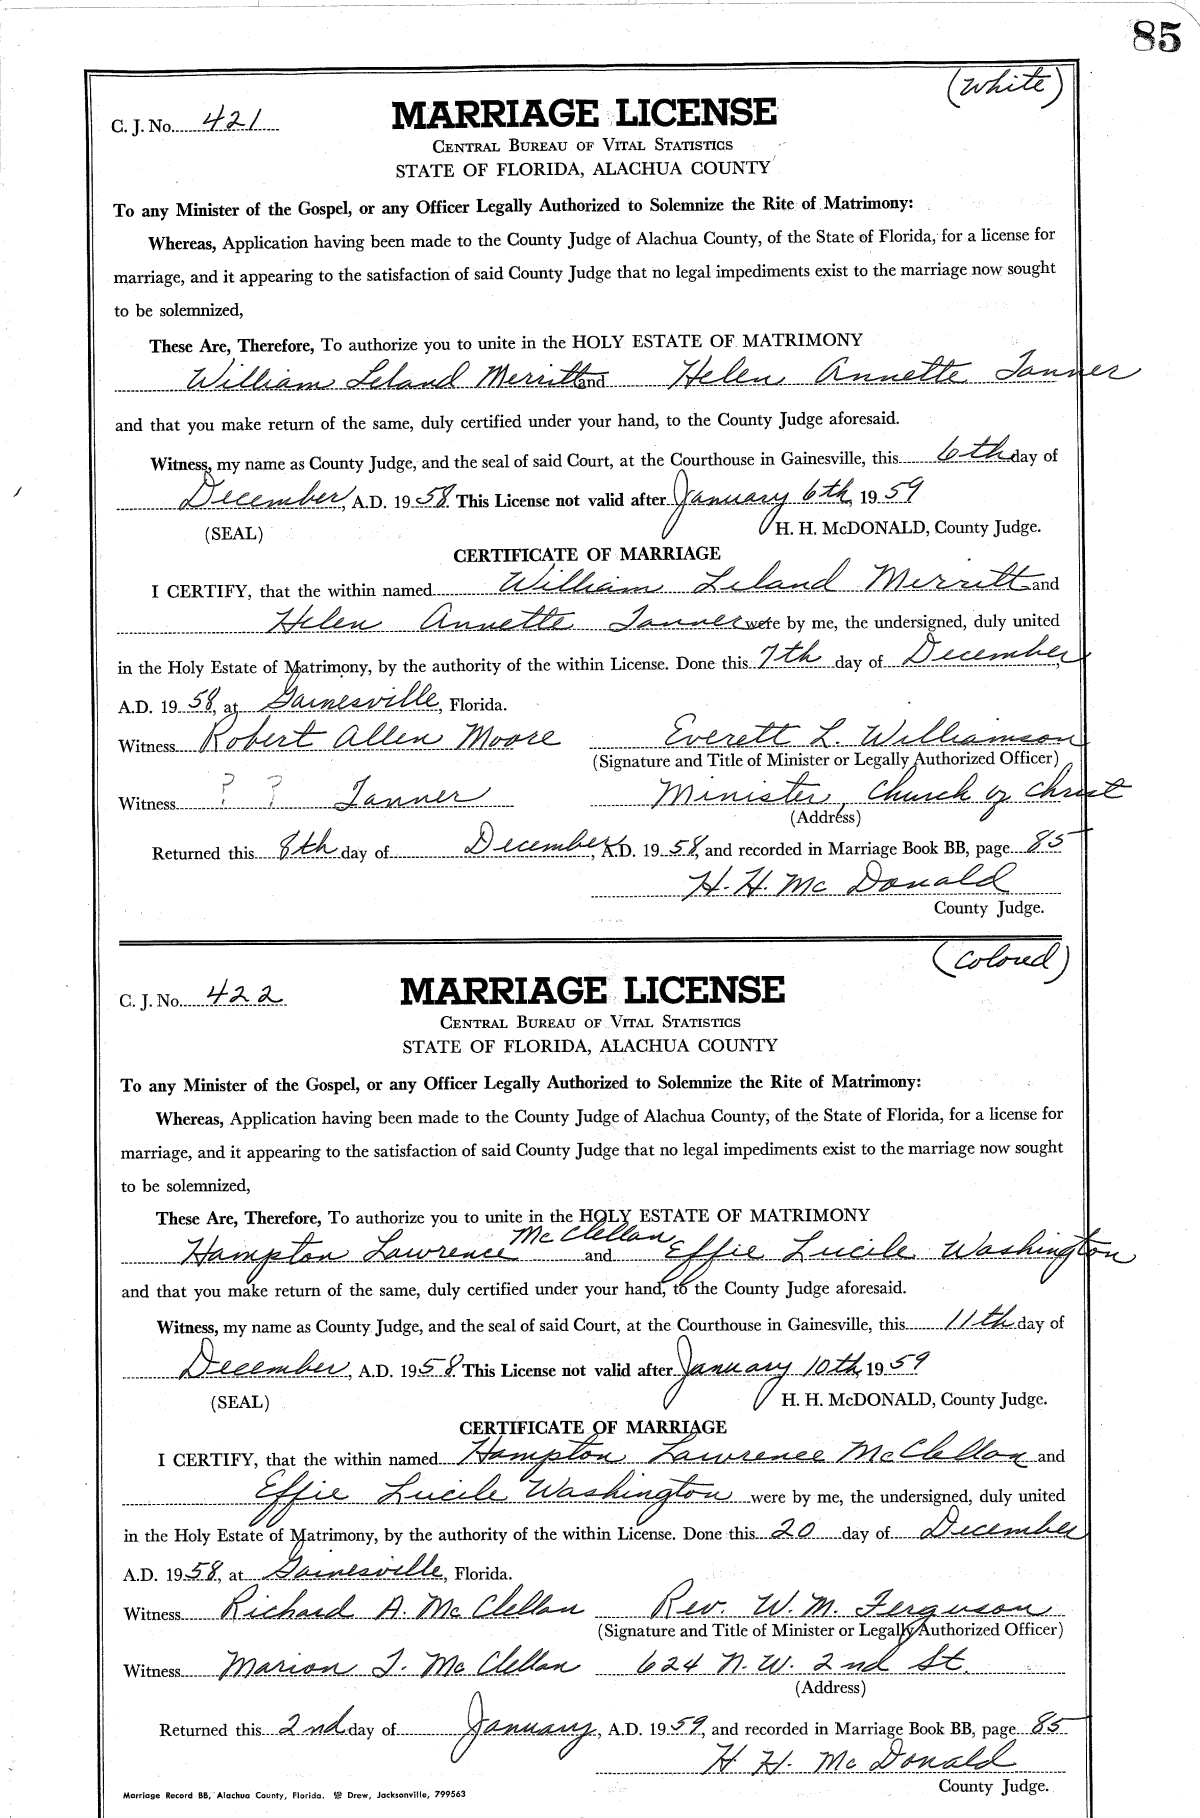 85
(White)
C. J. No. 421
MARRIAGE LICENSE
CENTRAL BUREAU OF VITAL STATISTICS
STATE OF FLORIDA, ALACHUA COUNTY
To any Minister of the Gospel, or any Officer Legally Authorized to Solemnize the Rite of Matrimony:
Whereas, Application having been made to the County Judge of Alachua County, of the State of Florida, for a license for
marriage, and it appearing to the satisfaction of said County Judge that no legal impediments exist to the marriage now sought
to be solemnized,
These Are, Therefore, To authorize you to unite in the HOLY ESTATE OF MATRIMONY
William Leland Merritt and Helen Annette Tanner
and that you make return of the same, duly certified under your hand, to the County Judge aforesaid.
Witness, my name as County Judge, and the seal of said Court, at the Courthouse in Gainesville, this 6th day of
December, A.D. 1958. This License not valid after January 6th, 1959
(SEAL) H. H. McDONALD, County Judge.
CERTIFICATE OF MARRIAGE
I CERTIFY, that the within named William Leland Merritt and
Helen Annette Tanner were by me, the undersigned, duly united
in the Holy Estate of Matrimony, by the authority of the within License. Done this 7th day of December,
A.D. 1958, at Gainesville, Florida.
Witness Robert Allen Moore Everett L. Williamson
(Signature and Title of Minister or Legally Authorized Officer)
Witness ? ? Tanner Minister, Church of Christ
(Address)
Returned this 8th day of December, A.D. 1958, and recorded in Marriage Book BB, page 85
H. H. Mc Donald
County Judge.
(Colored)
C. J. No. 422
MARRIAGE LICENSE
CENTRAL BUREAU OF VITAL STATISTICS
STATE OF FLORIDA, ALACHUA COUNTY
To any Minister of the Gospel, or any Officer Legally Authorized to Solemnize the Rite of Matrimony:
Whereas, Application having been made to the County Judge of Alachua County, of the State of Florida, for a license for
marriage, and it appearing to the satisfaction of said County Judge that no legal impediments exist to the marriage now sought
to be solemnized,
These Are, Therefore, To authorize you to unite in the HOLY ESTATE OF MATRIMONY
Hampton Lawrence McClellan and Effie Lucile Washington
and that you make return of the same, duly certified under your hand, to the County Judge aforesaid.
Witness, my name as County Judge, and the seal of said Court, at the Courthouse in Gainesville, this 11th day of
December, A.D. 1958. This License not valid after January 10th, 1959
(SEAL) H. H. McDONALD, County Judge.
CERTIFICATE OF MARRIAGE
I CERTIFY, that the within named Hampton Lawrence McClellan and
Effie Lucile Washington were by me, the undersigned, duly united
in the Holy Estate of Matrimony, by the authority of the within License. Done this 20 day of December
A.D. 1958, at Gainesville, Florida.
Witness Richard A. McClellan Rev. W. M. Ferguson
(Signature and Title of Minister or Legally Authorized Officer)
Witness Marion T. McClellan 624 N. W. 2nd St.
(Address)
Returned this 2nd day of January, A.D. 1959, and recorded in Marriage Book BB, page 85
H. H. McDonald
County Judge.
Marriage Record BB, Alachua County, Florida. Drew, Jacksonville, 799563